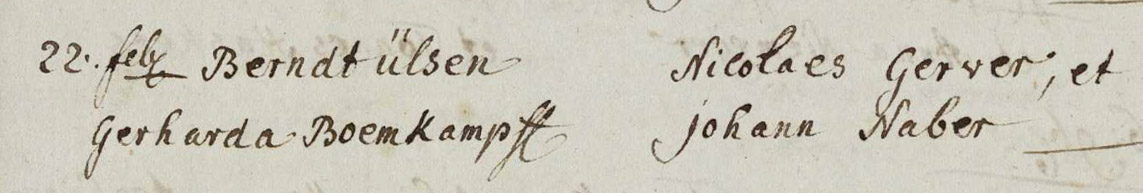 22. feb Berndt ülsen Nicolaes Gerver, et
Gerharda Boemkampff johann Naber